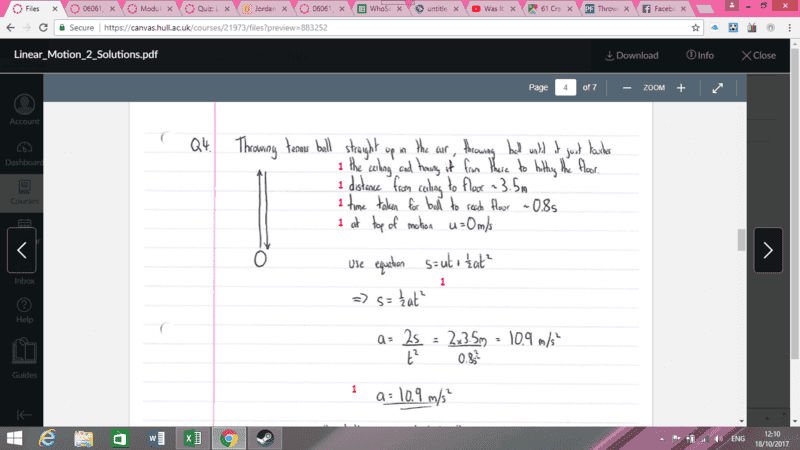 Files
06061_
Modul
Quiz: L
Jordan
06061_
WhoSa
untitle
Was It
61 Cro
Throw
Facebo
Secure https://canvas.hull.ac.uk/courses/21973/files?preview=883252
Linear_Motion_2_Solutions.pdf
Download
Info
Close
Page 4 of 7
ZOOM
Account
Dashboard
Courses
Inbox
Help
Guides
Q4. Throwing tennis ball straight up in the air, throwing ball until it just touches
1 the ceiling and timing it from there to hitting the floor.
1 distance from ceiling to floor ~3.5m
1 time taken for ball to reach floor ~0.8s
1 at top of motion u=0m/s
use equation s=ut+½at²
1
=> s=½at²
a = 2s/t² = 2x3.5m/0.8s² = 10.9 m/s²
1 a=10.9 m/s²
ENG
12:10
18/10/2017